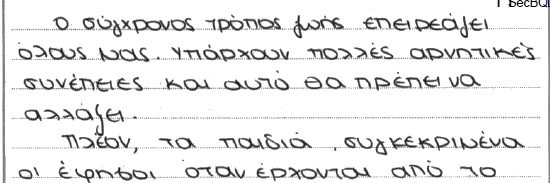 Ο σύγχρονος τρόπος ζωής επειρεάζει
όλους μας. Υπάρχουν πολλές αρνητικές
συνέπειες και αυτό θα πρέπει να
αλλάξει.
Πλέον, τα παιδιά, συγκεκρινένα
οι έφηβοι όταν έρχονται από το